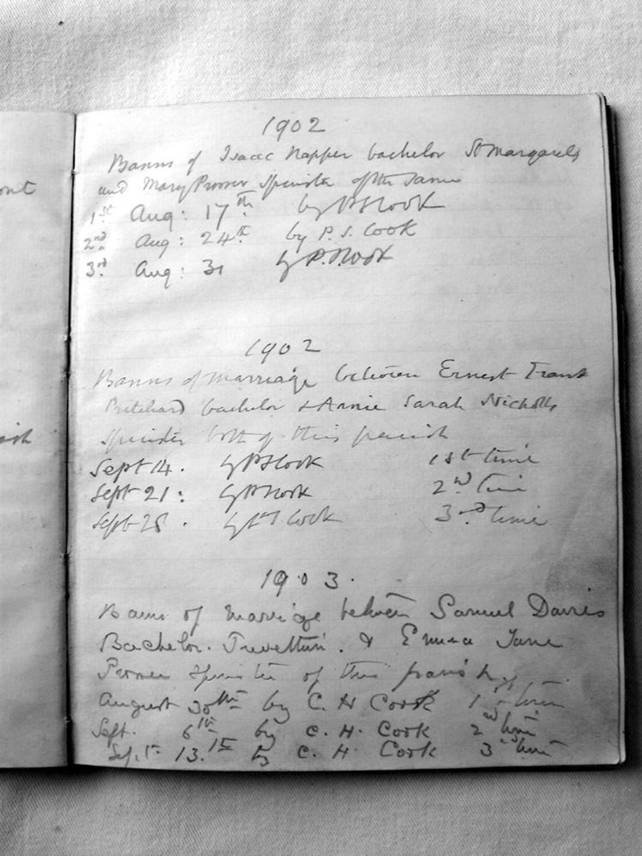 ont
1902
Banns of Isaac Napper bachelor St Margarets
and Mary Prosser Spinster of the Same
1st Aug: 17th by P S Cook
2nd Aug: 24th by P. S. Cook
3rd Aug: 31 by P. S. Cook
1902
Banns of marriage between Ernest Frank
Pritchard bachelor & Annie Sarah Nicholls
Spinster both of this parish
Sept 14. by P S Cook 1st time
Sept 21: by P S Cook 2nd time
Sept 28. by P S Cook 3rd time
1903.
Banns of marriage between Samuel Davies
Bachelor. & Emma Jane
Prosser Spinster of this parish
August 30th by C. H Cook 1st time
Sept. 6th by C. H. Cook 2nd time
Sept. 13.th by C. H. Cook 3rd time